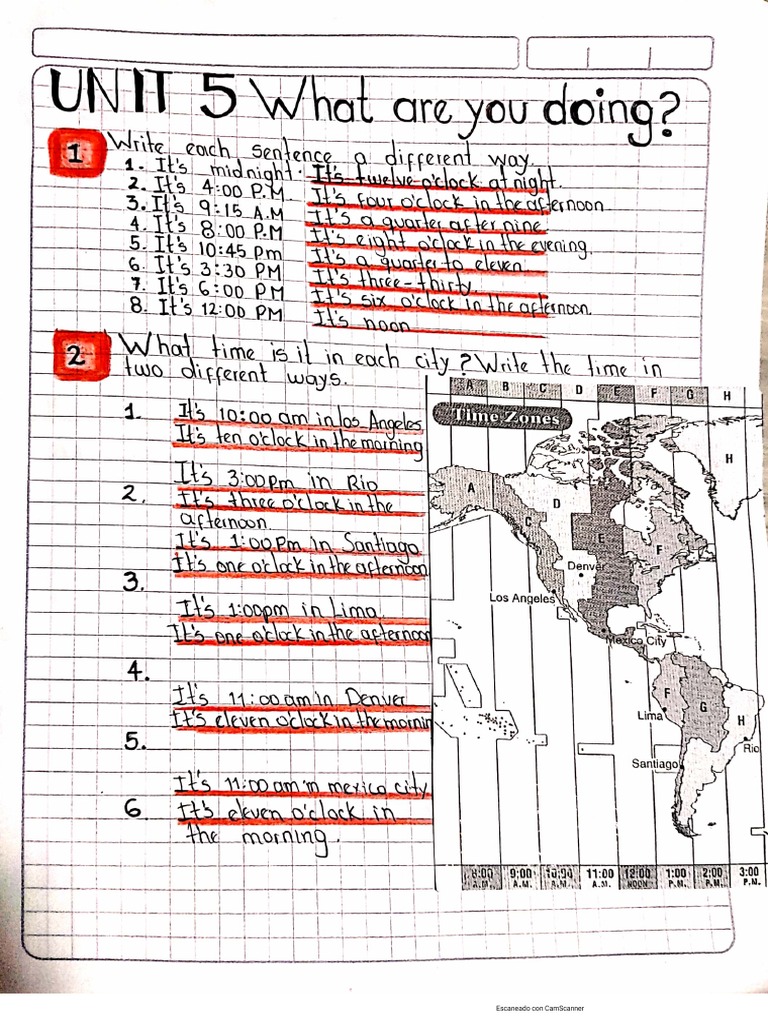 UNIT 5 What are you doing?
1 Write each sentence a different way.
1. It's midnight. It's twelve o'clock at night.
2. It's 4:00 P.M. It's four o'clock in the afternoon
3. It's 9:15 A.M It's a quarter after nine
4. It's 8:00 P.M It's eight o'clock in the evening.
5. It's 10:45 pm It's a quarter to eleven.
6. It's 3:30 PM It's three-thirty.
7. It's 6:00 PM It's six o'clock in the afternoon.
8. It's 12:00 PM It's noon
2 What time is it in each city? Write the time in
two different ways.
1. It's 10:00 am in los Angeles
It's ten o'clock in the morning
It's 3:00pm in Rio
2. It's three o'clock in the
afternoon.
It's 1:00pm in Santiago
It's one o'clock in the afternoon
3.
It's 1:00pm in Lima
It's one o'clock in the afternoon
4.
It's 11:00 am in Denver
It's eleven o'clock in the mornin
5.
It's 11:00 am in mexico city
6 It's eleven o'clock in
the morning.
A B C D E F G H
Time Zones
H
A
D
C
E
F
Denver
Los Angeles
Mexico City
F
G
H
Lima
Rio
Santiago
8:00 9:00 10:00 11:00 12:00 1:00 2:00 3:00
A.M. A.M. A.M. A.M. NOON P.M. P.M. P.M.
Escaneado con CamScanner